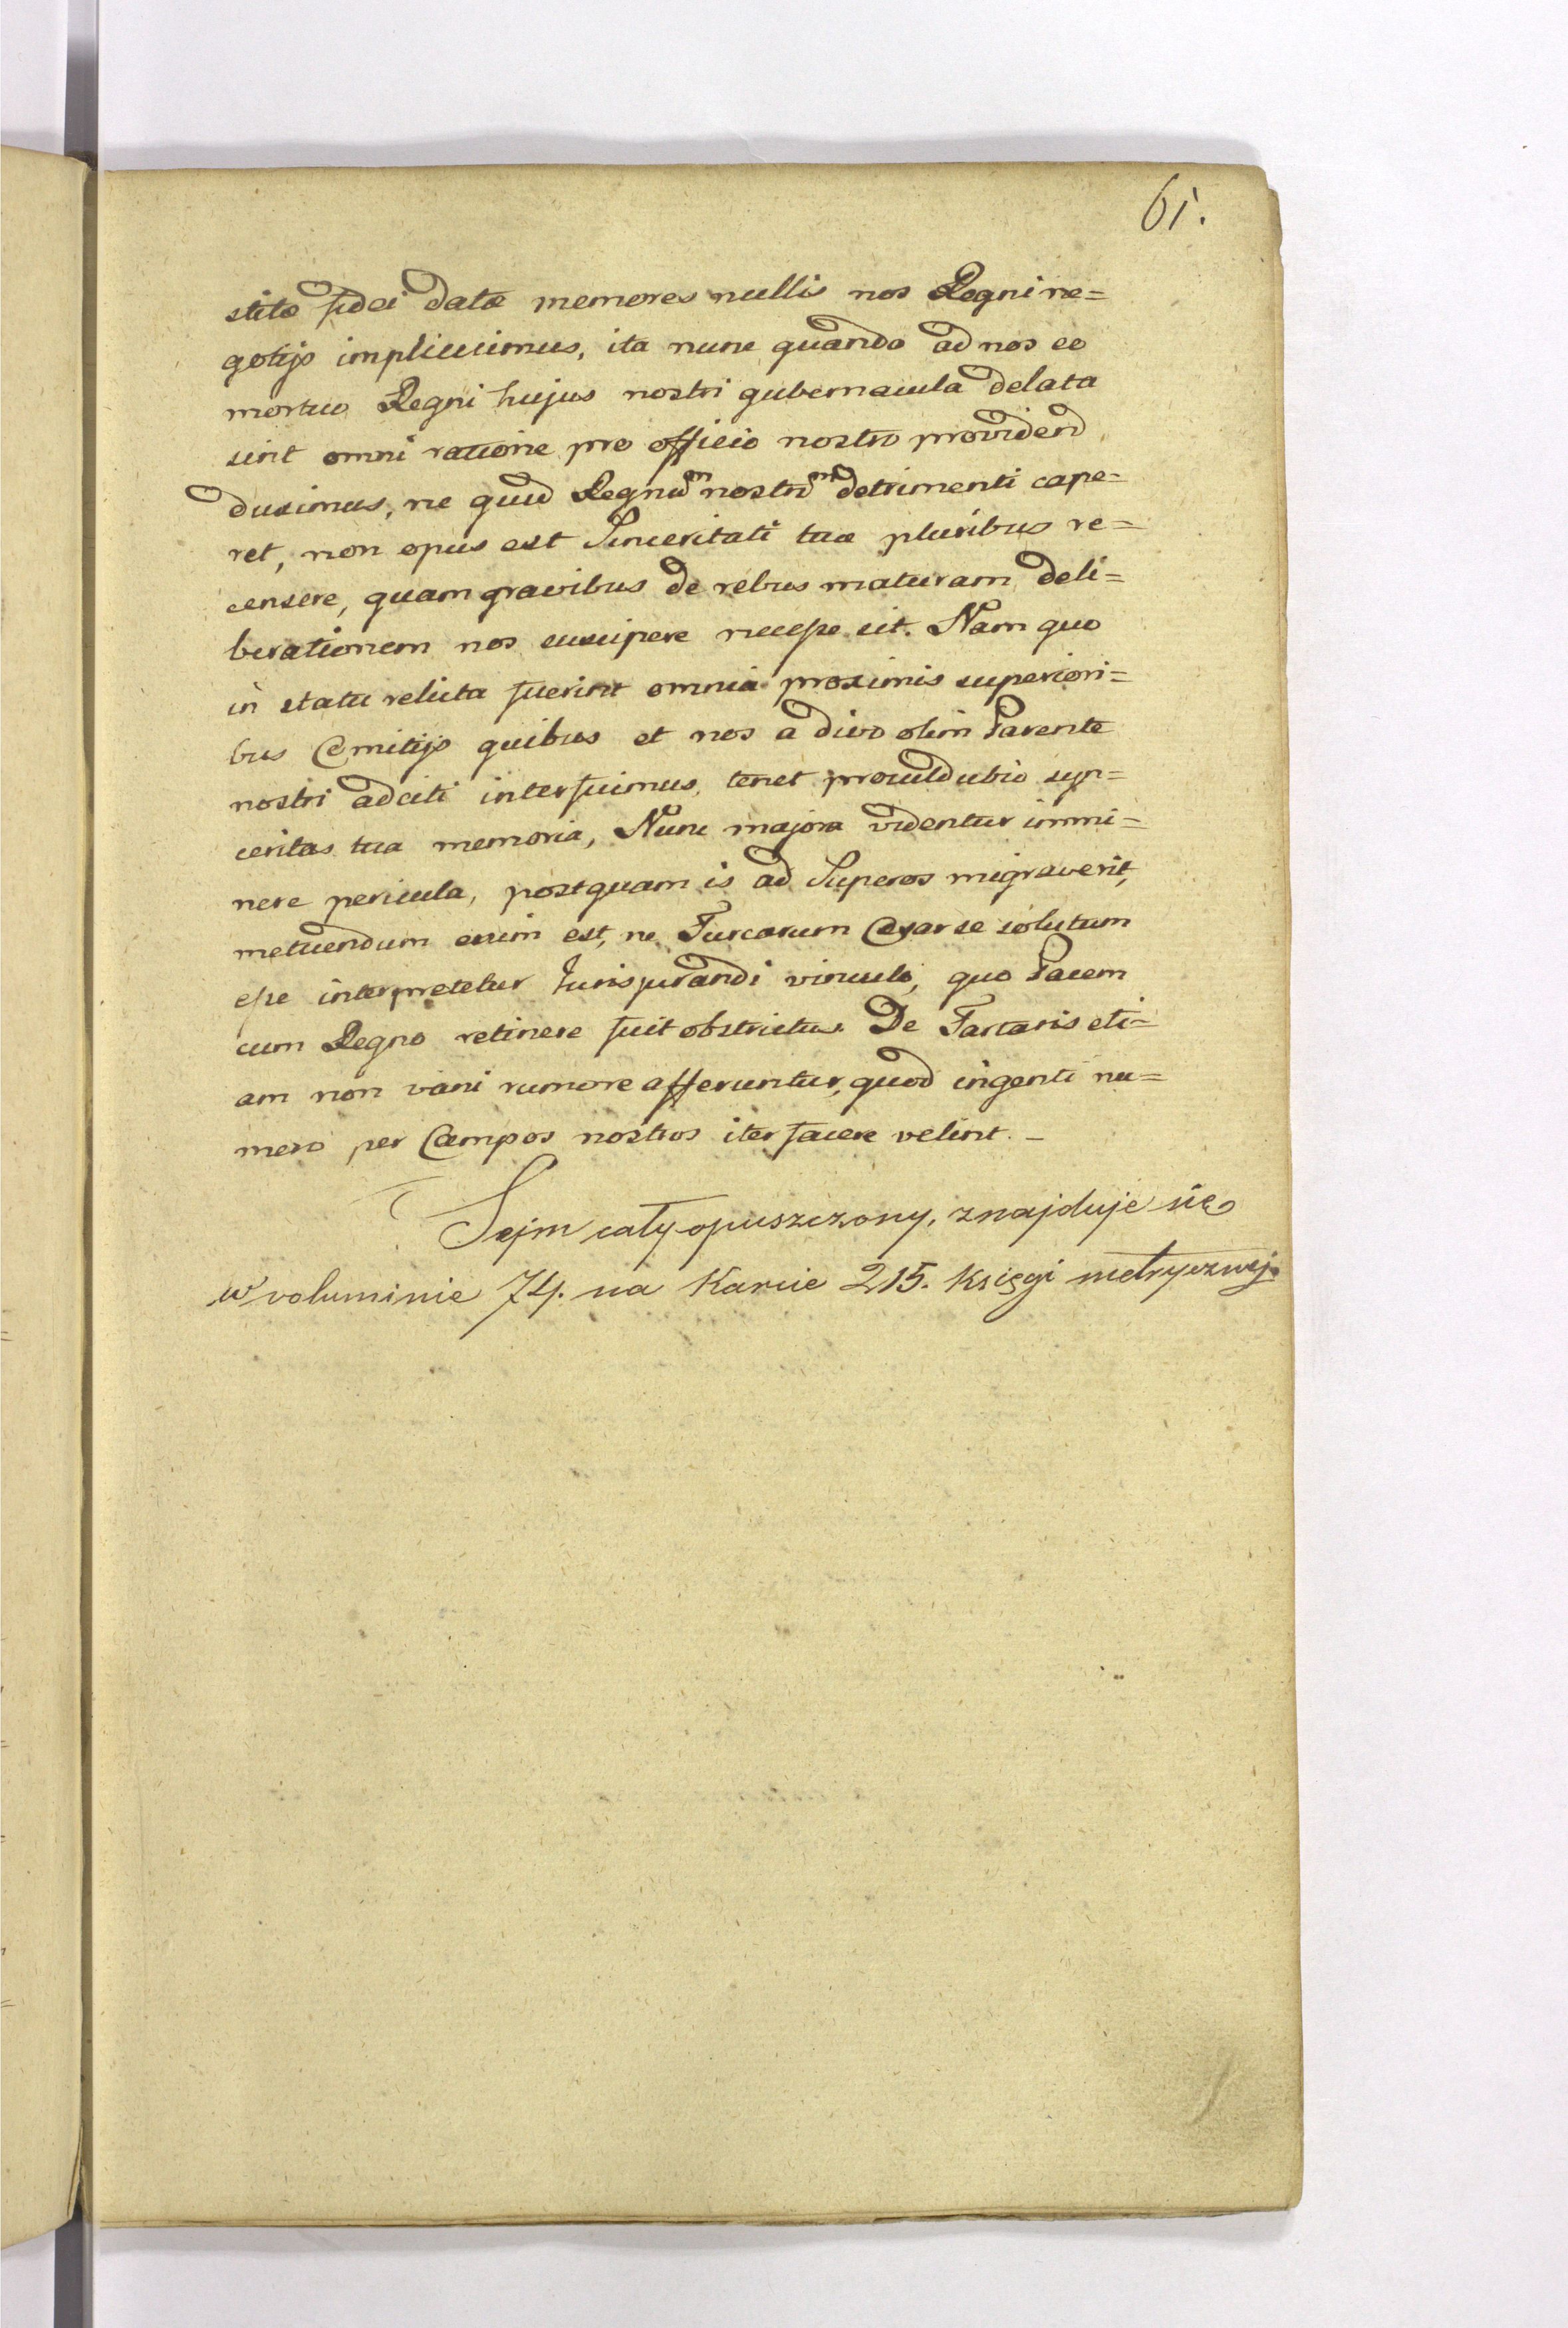 61.
stitæ fidei datæ memores nullis nos Regni ne=
gotijs implicuimus, ita nunc quando ad nos eo
mortuo Regni hujus nostri gubernacula delata
sint omni ratione pro officio nostro providend
duximus, ne quid Regnum nostrum detrimenti cape=
ret, non opus est Sinceritati tuæ pluribus re=
censere, quam gravibus de rebus maturam deli=
berationem nos suscipere necesse sit. Nam quo
in statu relicta fuerint omnia proximis superiori=
bus Comitijs quibus et nos a divo olim Parente
nostri adciti interfuimus, tenet proculdubio syn=
ceritas tua memoria, Nunc majora videntur immi=
nere pericula, postquam is ad Superos migraverit,
metuendum enim est, ne Turcarum Cæsar se solutum
esse interpretetur Jurisjurandi vinculo, quo Pacem
cum Regno retinere fuit obstrictus. De Tartaris eti=
am non vani rumore afferuntur, quod ingenti nu=
mero per Campos nostros iter facere velint. –
Sejm cały opuszczony, znajduje się
w voluminie 74. na Karcie 215. Księgi metrycznej.